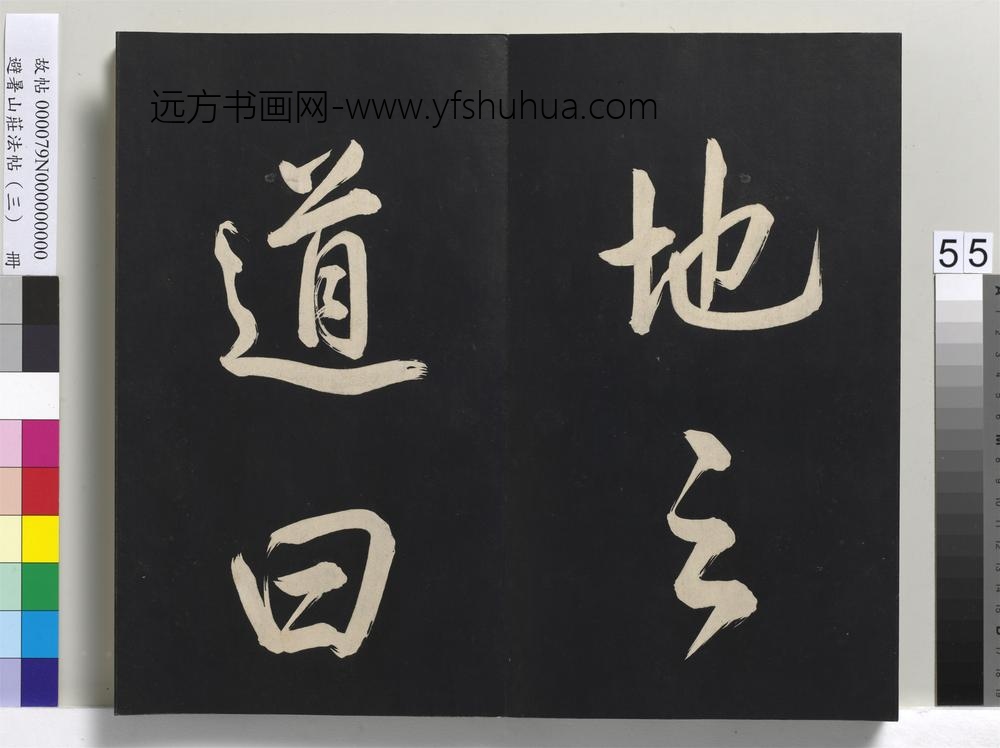 地之
道曰
远方书画网-www.yfshuhua.com
故帖 000079N000000000
避暑山莊法帖（三） 冊
55